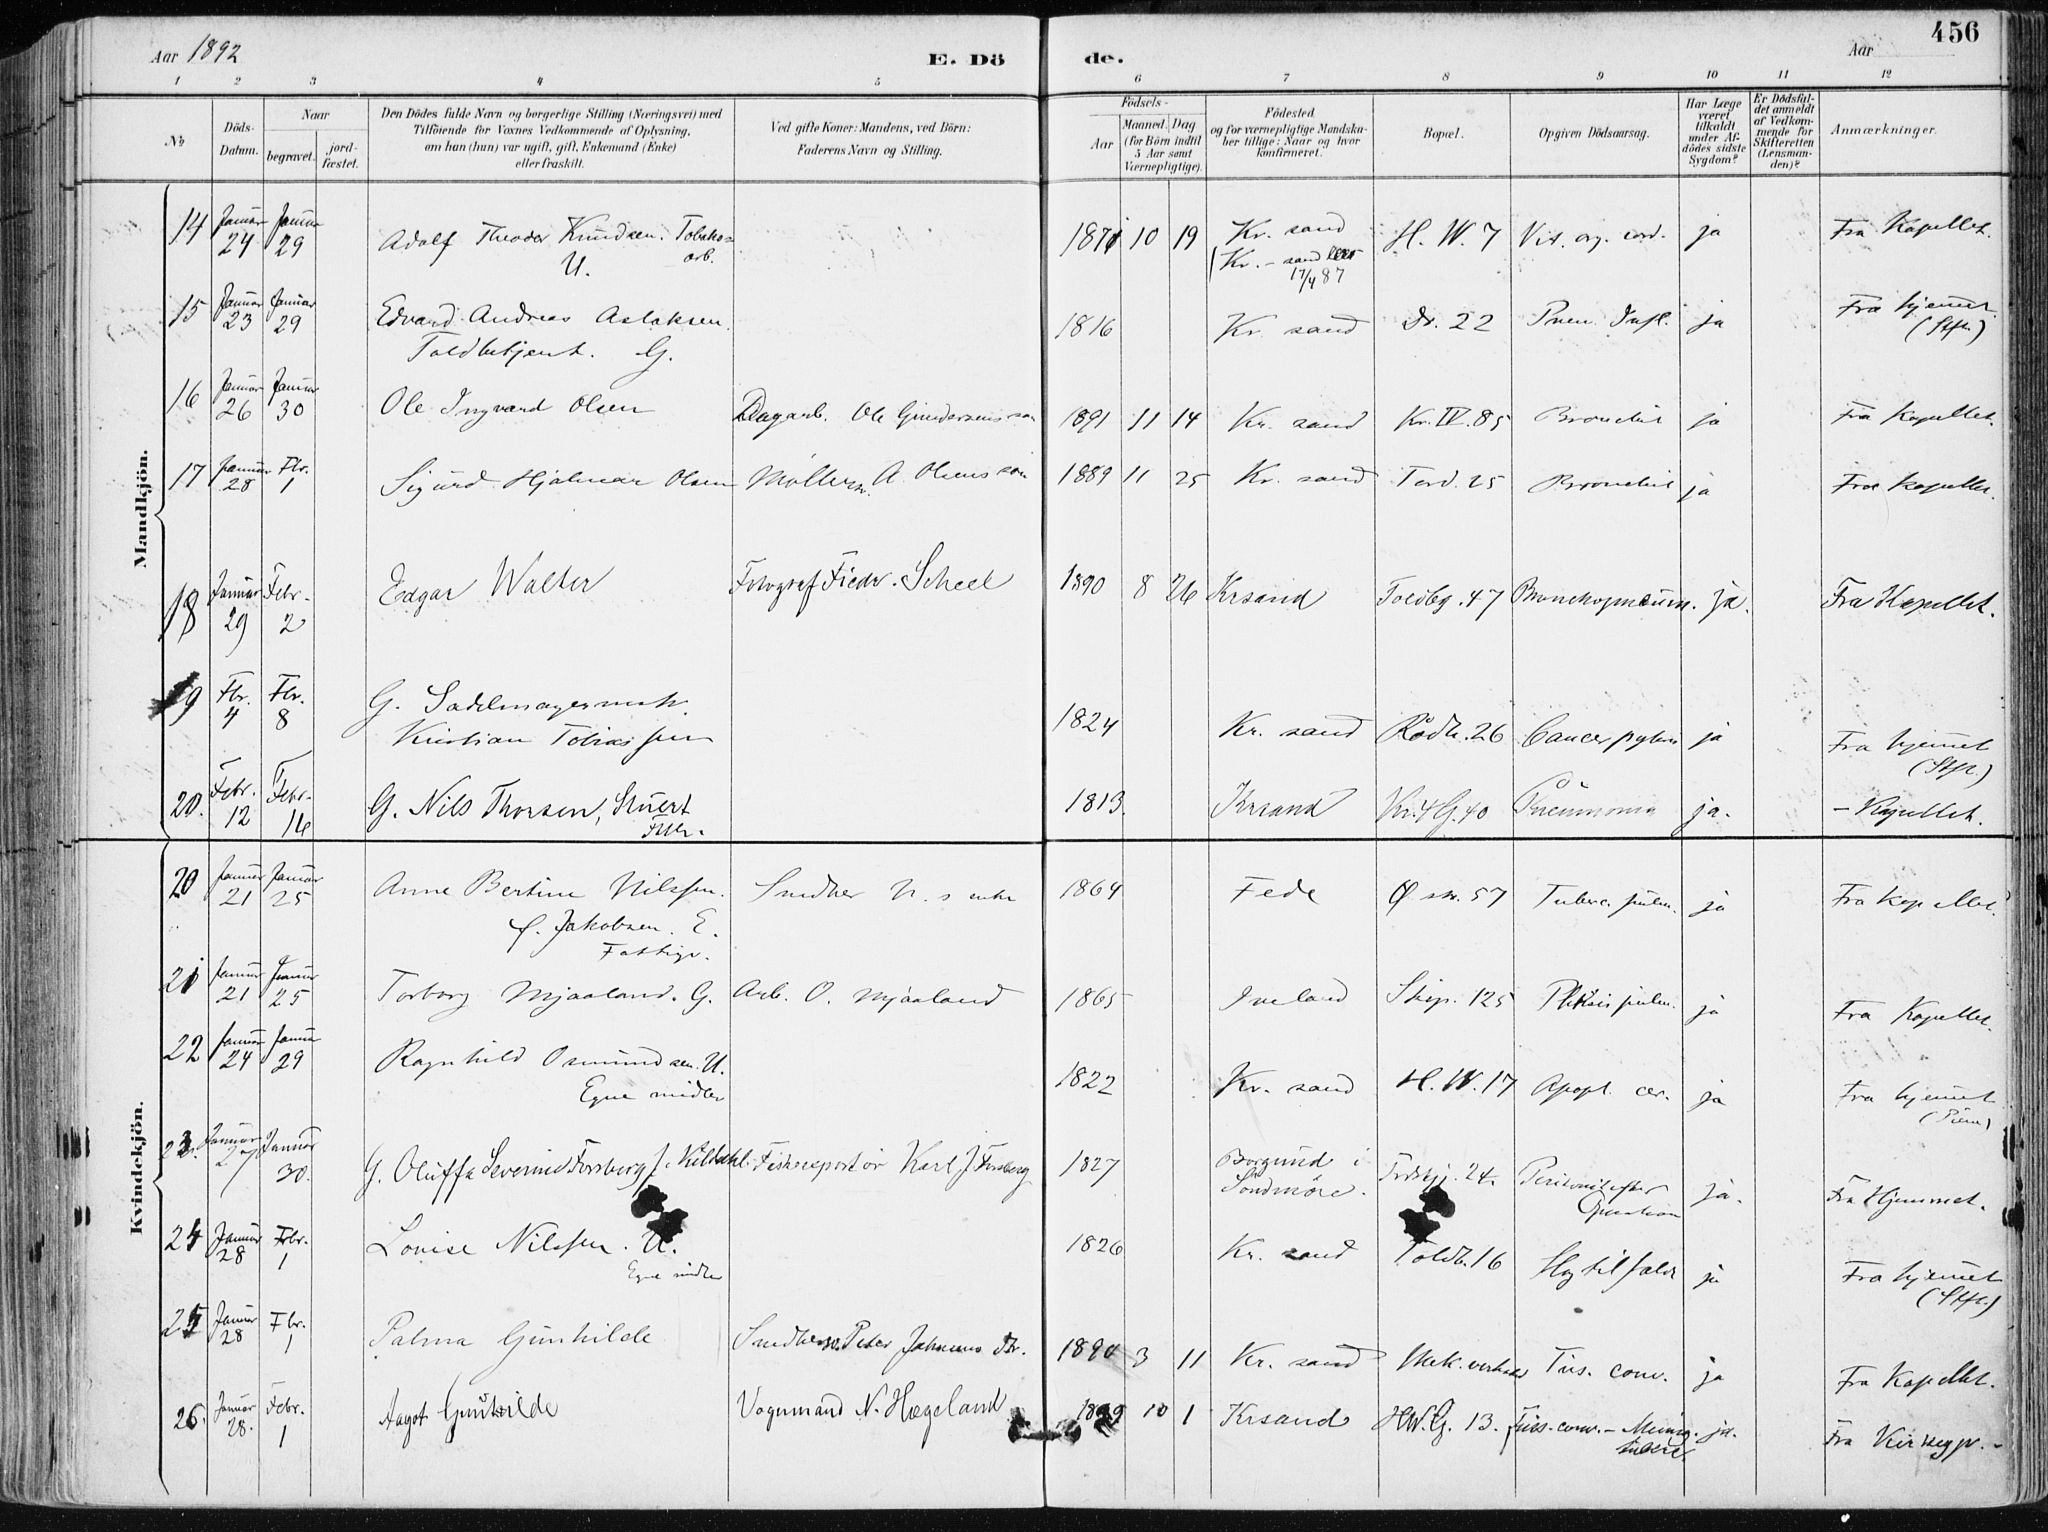 Aar 1892
E. Dö
de.
Aar
456
1 2 3 4 5 6 7 8 9 10 11 12
No
Döds-
Datum.
Naar
begravet.
jord-
fæstet.
Den Dödes fulde Navn og borgerlige Stilling (Næringsvei) med
Tilföiende for Voxnes Vedkommende af Oplysning,
om han (hun) var ugift, gift, Enkemand (Enke)
eller fraskilt.
Ved gifte Koner: Mandens, ved Börn:
Faderens Navn og Stilling.
Födsels-
Aar
Maaned. Dag
(for Börn indtil
5 Aar samt
Værnepligtige).
Födested
og for værnepligtige Mandska-
ber tillige: Naar og hvor
konfirmeret.
Bopæl.
Opgiven Dödsaarsag.
Har Læge
været
tilkaldt
under Af-
dödes sidste
Sygdom?
Er Dödsfal-
det anmeldt
af Vedkom-
mende for
Skifteretten
(Lensman-
den)?
Anmærkninger.
Mandkjön.
14 Januar 24 Januar 29 Adolf Theodor Knudsen. Tobaks-
arb.
U.
1871 10 19 Kr. sand H. W. 7 Vit. org. cord. ja Fra Kapellet.
(Kr.-sand
17/4 87
15 Januar 23 Januar 29 Edvard Andreas Aslaksen.
Toldbetjent. G.
1816 Kr. sand Dr. 22 Pneu. Infl. ja Fra hjemet
(Stfl.)
16 Januar 26 Januar 30 Ole Ingvard Olsen Dagarb. Ole Gundersens søn 1891 11 14 Kr. sand Kr. IV. 85 Bronchit ja Fra Kapellet.
17 Januar 28 Fbr. 1 Sigurd Hjalmar Olsen Møllersv. A. Olsens søn 1889 11 25 Kr. sand Tord. 25 Bronchit ja Fra Kapellet.
18 Januar 29 Febr. 2 Edgar Walter Fotograf Fredr. Scheel 1890 8 26 Krsand Toldbg. 47 Bronchopneum. ja. Fra Kapellet.
19 Fbr. 4 Fbr. 8 G. Sadelmagermst.
Kristian Tobiassen
1824 Kr. sand Rådh. 26 Cancer pylori ja Fra hjemet
(Stfl.)
20. Febr. 12 Febr. 16 G. Nils Thorsen, Stuert
1813. Krsand Kr. 4 G. 40 Pneumonia ja. - Kapellet.
Kvindekjön.
20 Januar 21 Januar 25 Anne Bertine Nilssen Smedsv. N. s enke 1864 Fede Ø. str. 57 Tuberc. pulm. ja Fra Kapellet.
f. Jakobsen. E.
Fattigv.
21 Januar 21 Januar 25 Torborg Mjaaland. G. Arb. O. Mjåaland 1865 Iveland Skip. 125 Phtisis pulm. ja Fra Kapellet.
22 Januar 24 Januar 29 Ragnhild Osmundsen. U.
Egne midler
1822 Kr. sand H. W. 17 Apopl. cer. ja Fra hjemet
23. Januar 27 Januar 30. G. Oluffa Severine Forsberg f. Kildahl Fiskereportør Karl J. Forsberg 1827 Borgund i
Søndmöre. 24. Peritonit efter
Operation ja. Fra Hjemmet.
24 Januar 28 Fbr. 1 Lovise Nilssen. U.
Egne midler
1826 Kr. sand Toldb. 16 Slagtilfælde ja Fra hjemet
(Stfl.)
25 Januar 28 Fbr. 1 Palma Gunhilde Smedsv. Peter Johnsens dtr. 1890 3 11 Kr. sand Mek. verksted Tus. conv. ja Fra Kapellet.
26. Januar 28. Febr. 1 Aagot Gunhilde Vognmand N. Hægeland 1889 10 1 Krsand H.W.G. 13. Tuss. conv. - Mening.
tuberc. ja. Fra Kirkegr. -